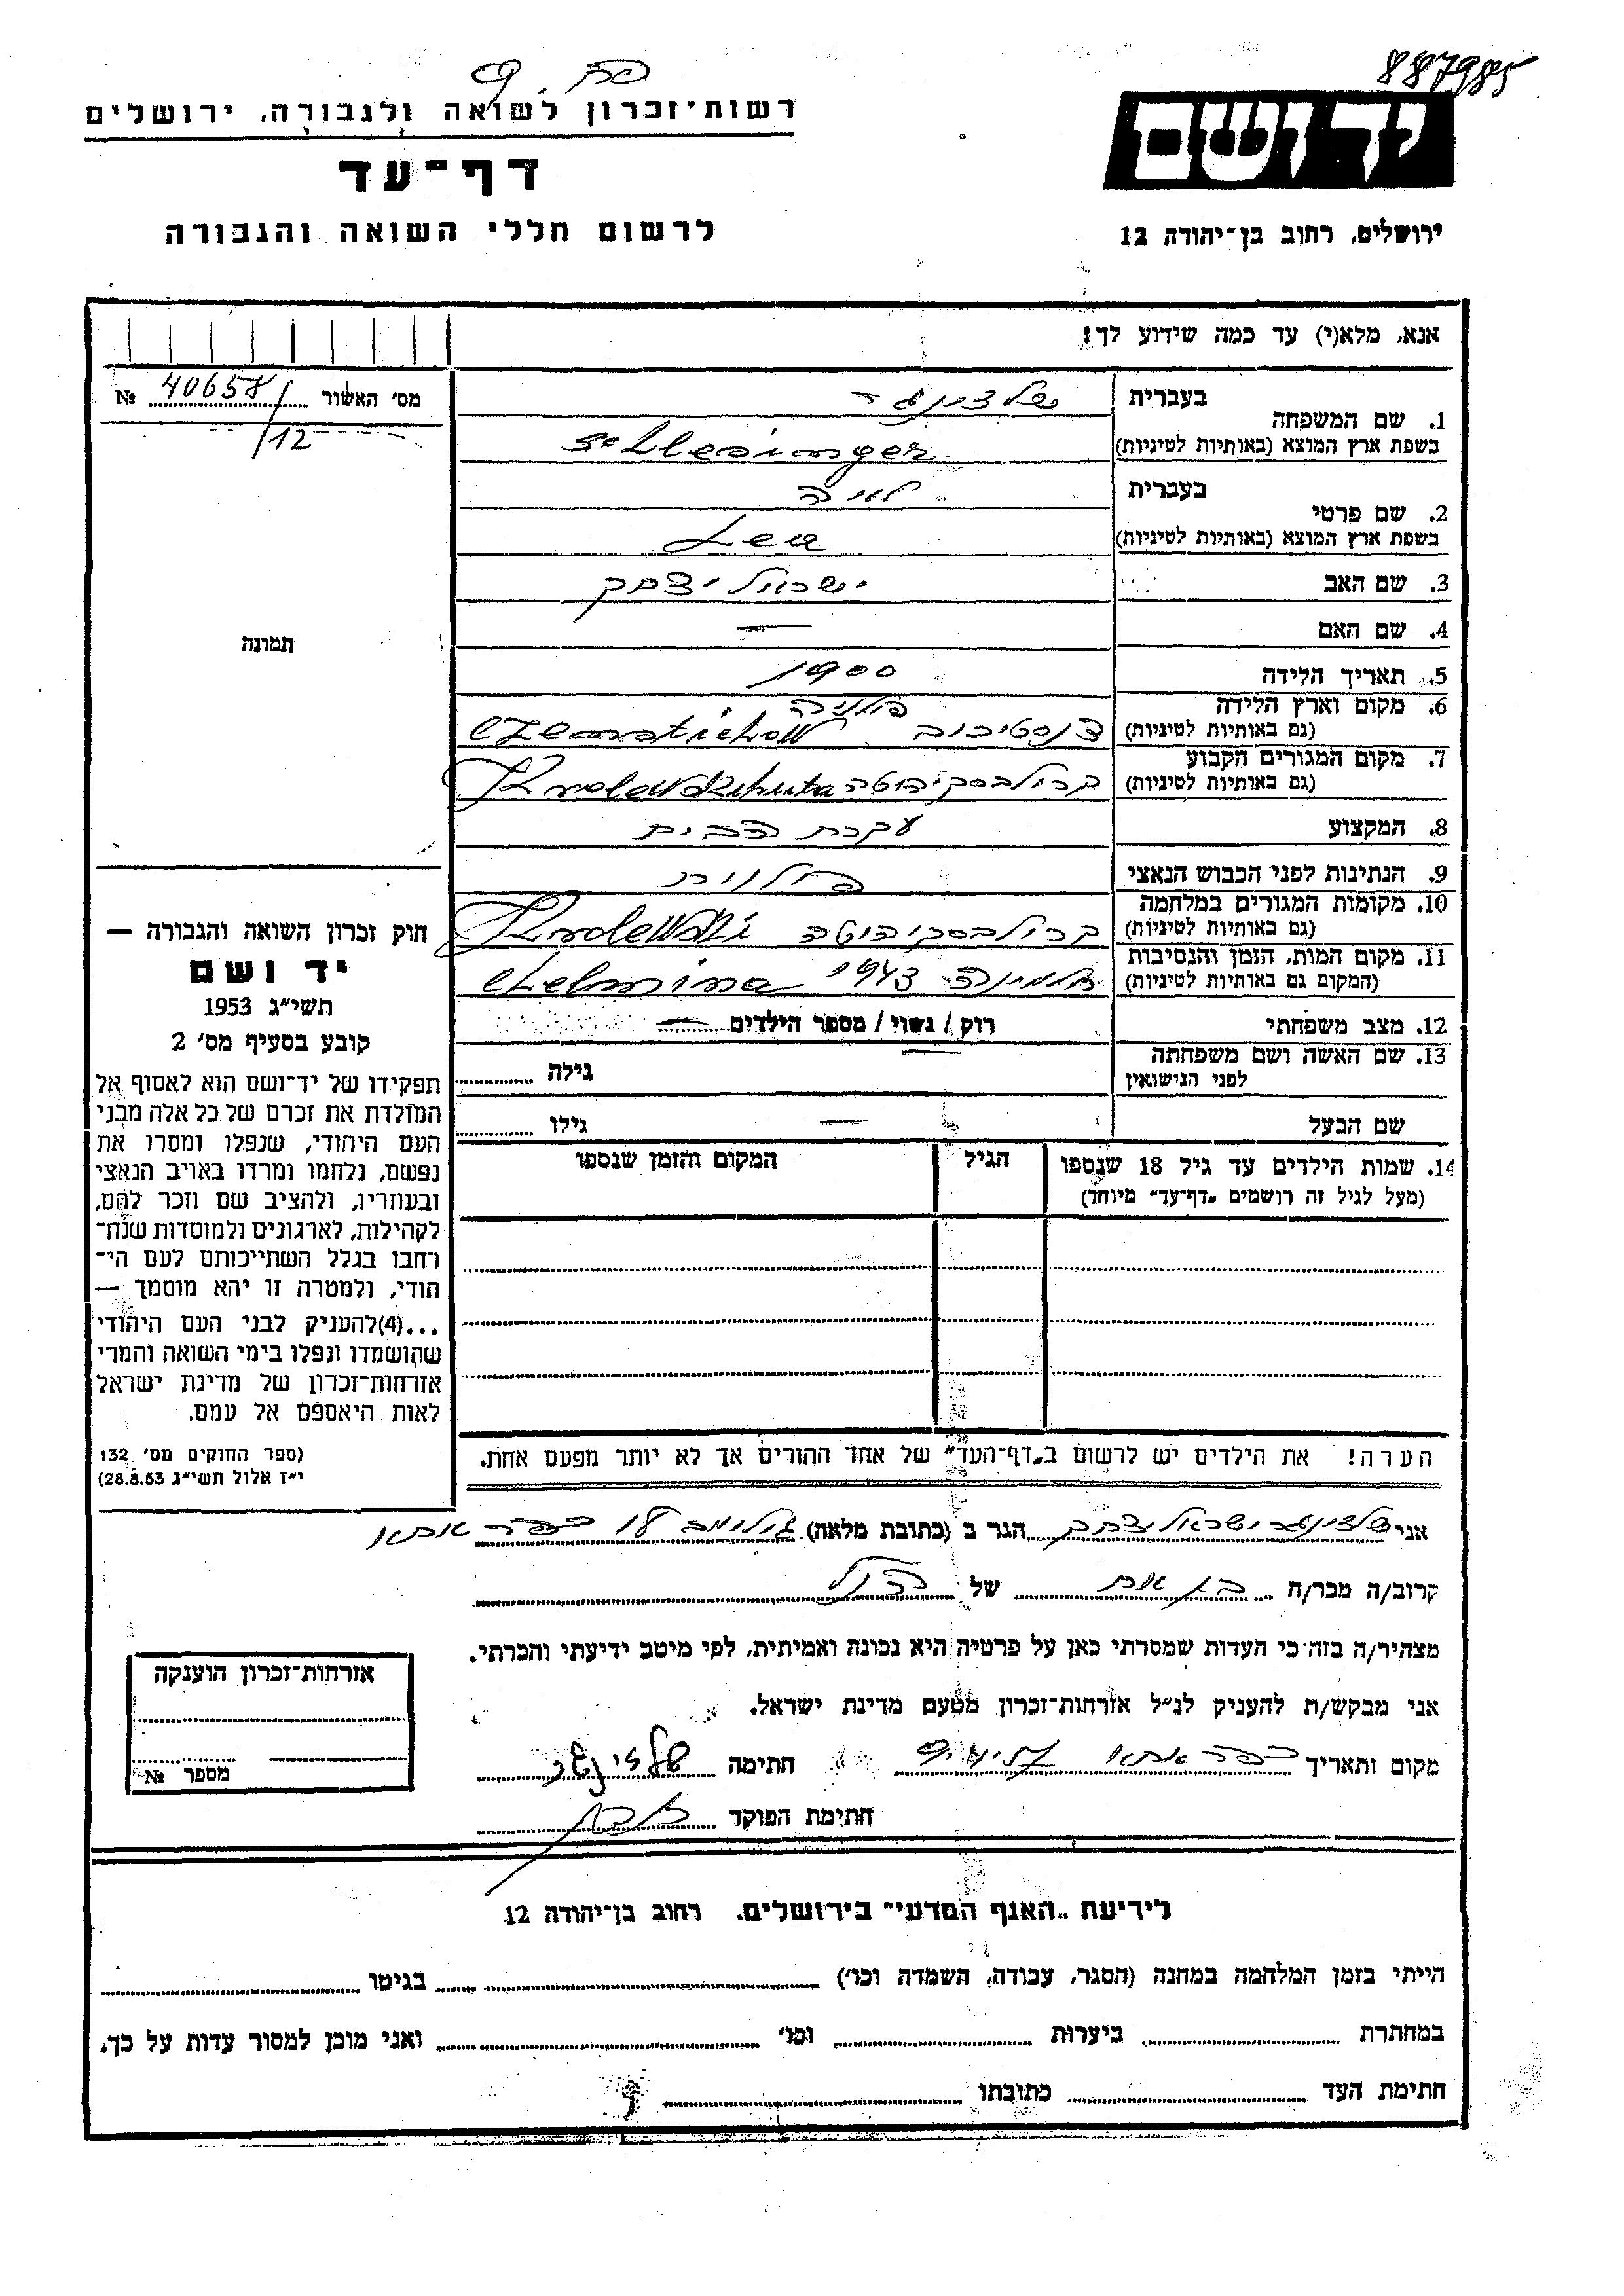 887985
רשות-זכרון לשואה ולגבורה, ירושלים
יד ושם
דף-עד
ירושלים, רחוב בן-יהודה 12
לרשום חללי השואה והגבורה
אנא, מלא(י) עד כמה שידוע לך!
מס' האשור 40658 №
/12
תמונה
1. שם המשפחה
בעברית שלזינגר
בשפת ארץ המוצא (באותיות לטיניות) Schlesinger
2. שם פרטי
בעברית לאה
בשפת ארץ המוצא (באותיות לטיניות) Lea
3. שם האב ישראל יצחק
4. שם האם —
5. תאריך הלידה 1900
6. מקום וארץ הלידה פולניה
(גם באותיות לטיניות)
7. מקום המגורים הקבוע
(גם באותיות לטיניות)
8. המקצוע עקרת הבית
9. הנתינות לפני הכבוש הנאצי פולנית
10. מקומות המגורים במלחמה
(גם באותיות לטיניות)
11. מקום המות, הזמן והנסיבות
(המקום גם באותיות לטיניות) 1943 chelmina
12. מצב משפחתי רוק / נשוי / מספר הילדים —
13. שם האשה ושם משפחתה — גילה
לפני הנישואין
שם הבעל — גילו
14. שמות הילדים עד גיל 18 שנספו הגיל המקום והזמן שנספו
(מעל לגיל זה רושמים "דף-עד" מיוחד)
הערה! את הילדים יש לרשום ב"דף-העד" של אחד ההורים אך לא יותר מפעם אחת.
חוק זכרון השואה והגבורה —
יד ושם
תשי"ג 1953
קובע בסעיף מס' 2
תפקידו של יד-ושם הוא לאסוף אל
המולדת את זכרם של כל אלה מבני
העם היהודי, שנפלו ומסרו את
נפשם, נלחמו ומרדו באויב הנאצי
ובעוזריו, ולהציב שם וזכר להם,
לקהילות, לארגונים ולמוסדות שנח-
רחבו בגלל השתייכותם לעם הי-
הודי, ולמטרה זו יהא מוסמך —
...(4)להעניק לבני העם היהודי
שהושמדו ונפלו בימי השואה והמרי
אזרחות-זכרון של מדינת ישראל
לאות היאספם אל עמם.
(ספר החוקים מס' 132
י"ז אלול תשי"ג 28.8.53)
אני שלזינגר ישראל יצחק הגר ב (כתובת מלאה) כפר אתא
קרוב/ה מכר/ה של הנ"ל
מצהיר/ה בזה כי העדות שמסרתי כאן על פרטיה היא נכונה ואמיתית, לפי מיטב ידיעתי והכרתי.
אני מבקש/ת להעניק לנ"ל אזרחות-זכרון מטעם מדינת ישראל.
מקום ותאריך כפר אתא חתימה שלזינגר
חתימת הפוקד
אזרחות-זכרון הוענקה
מספר №
לידיעת "האגף המדעי" בירושלים. רחוב בן-יהודה 12
הייתי בזמן המלחמה במחנה (הסגר, עבודה, השמדה וכו') בגיטו
במחתרת ביערות וכו' ואני מוכן למסור עדות על כך.
חתימת העד כתובתו